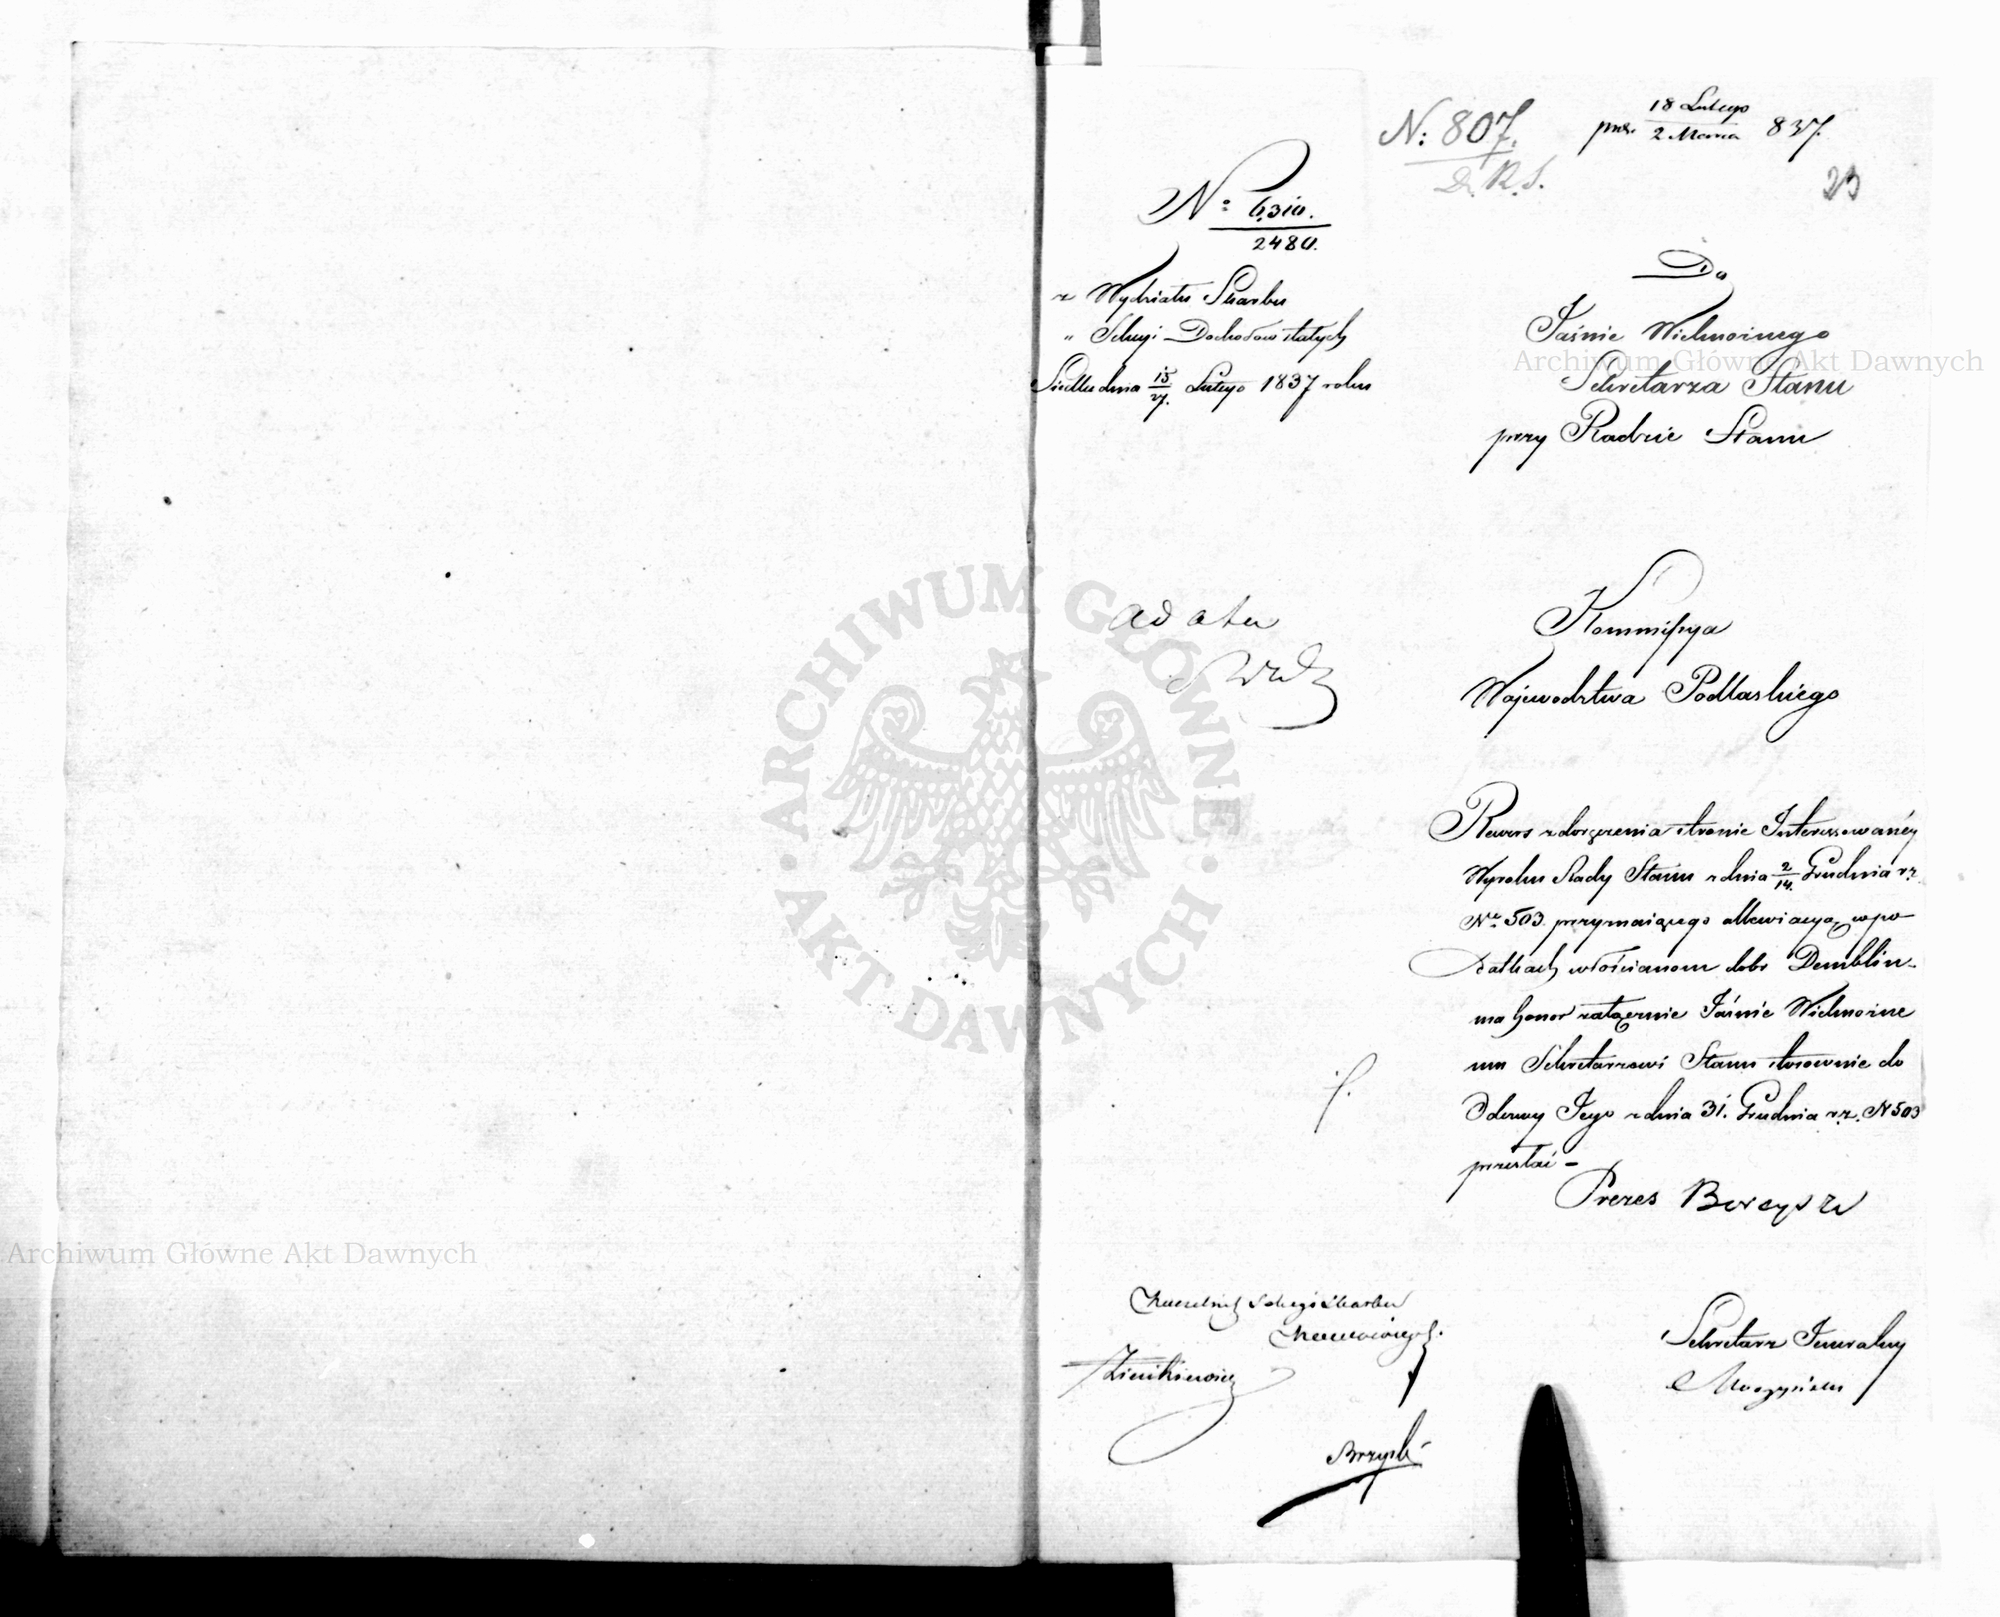 N: 807.
D. R. S.
prez. 18 Lutego / 2 Marca 837.
23
N° 6,310. / 2480.
z Wydziału Skarbu
" Sekcyi Dochodów stałych
Siedlce dnia 15/27. Lutego 1837 roku
Do
Jaśnie Wielmożnego
Sekretarza Stanu
przy Radzie Stanu
ad acta
Kommissya
Województwa Podlaskiego
Rewers z doręczenia stronie Interessowanéy
Wyroku Rady Stanu z dnia 2/14. Grudnia r.z.
N° 503. przyznaiącego allewiacyą w po-
datkach włościanom dobr Demblin
ma honor załączenie Jaśnie Wielmożne
mu Sekretarzowi Stanu stosownie do
Odezwy Jego z dnia 31. Grudnia r.z. N 503
przesłać -
Prezes
Naczelnik Sekcyi Skarbu
Sekretarz Jeneralny
Archiwum Główne Akt Dawnych
Archiwum Główne Akt Dawnych
ARCHIWUM GŁÓWNE · AKT DAWNYCH ·